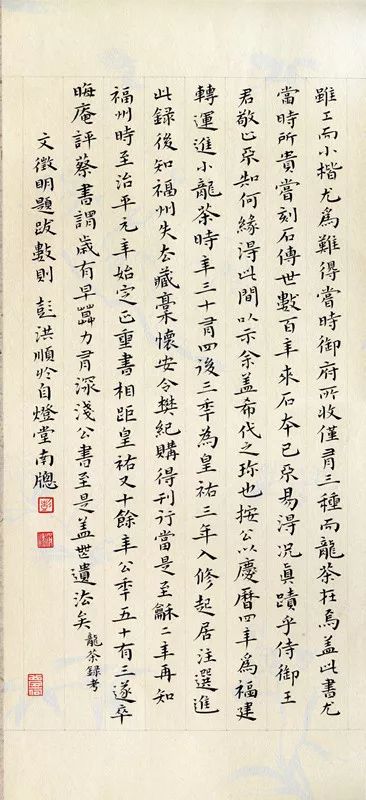 雖工而小楷尤為難得當時御府所收僅有三種而龍茶在焉蓋此書尤
當時所貴嘗刻石傳世數百年來石本已不易得況真蹟乎侍御王
君敬止不知何緣得此間以示余蓋希代之珎也按公以慶曆四年為福建
轉運進小龍茶時年三十有四後三年為皇祐三年入修起居注選進
此錄後知福州失去藏藁懷安令樊紀購得刊行當是至龢二年再知
福州時至治平元年始定正重書相距皇祐又十餘年公年五十有三遂卒
晦庵評蔡書謂歲有早晚力有深淺公書至是蓋無遺法矣 龍茶錄考
文徵明題跋數則 彭洪順於自燈堂南牕